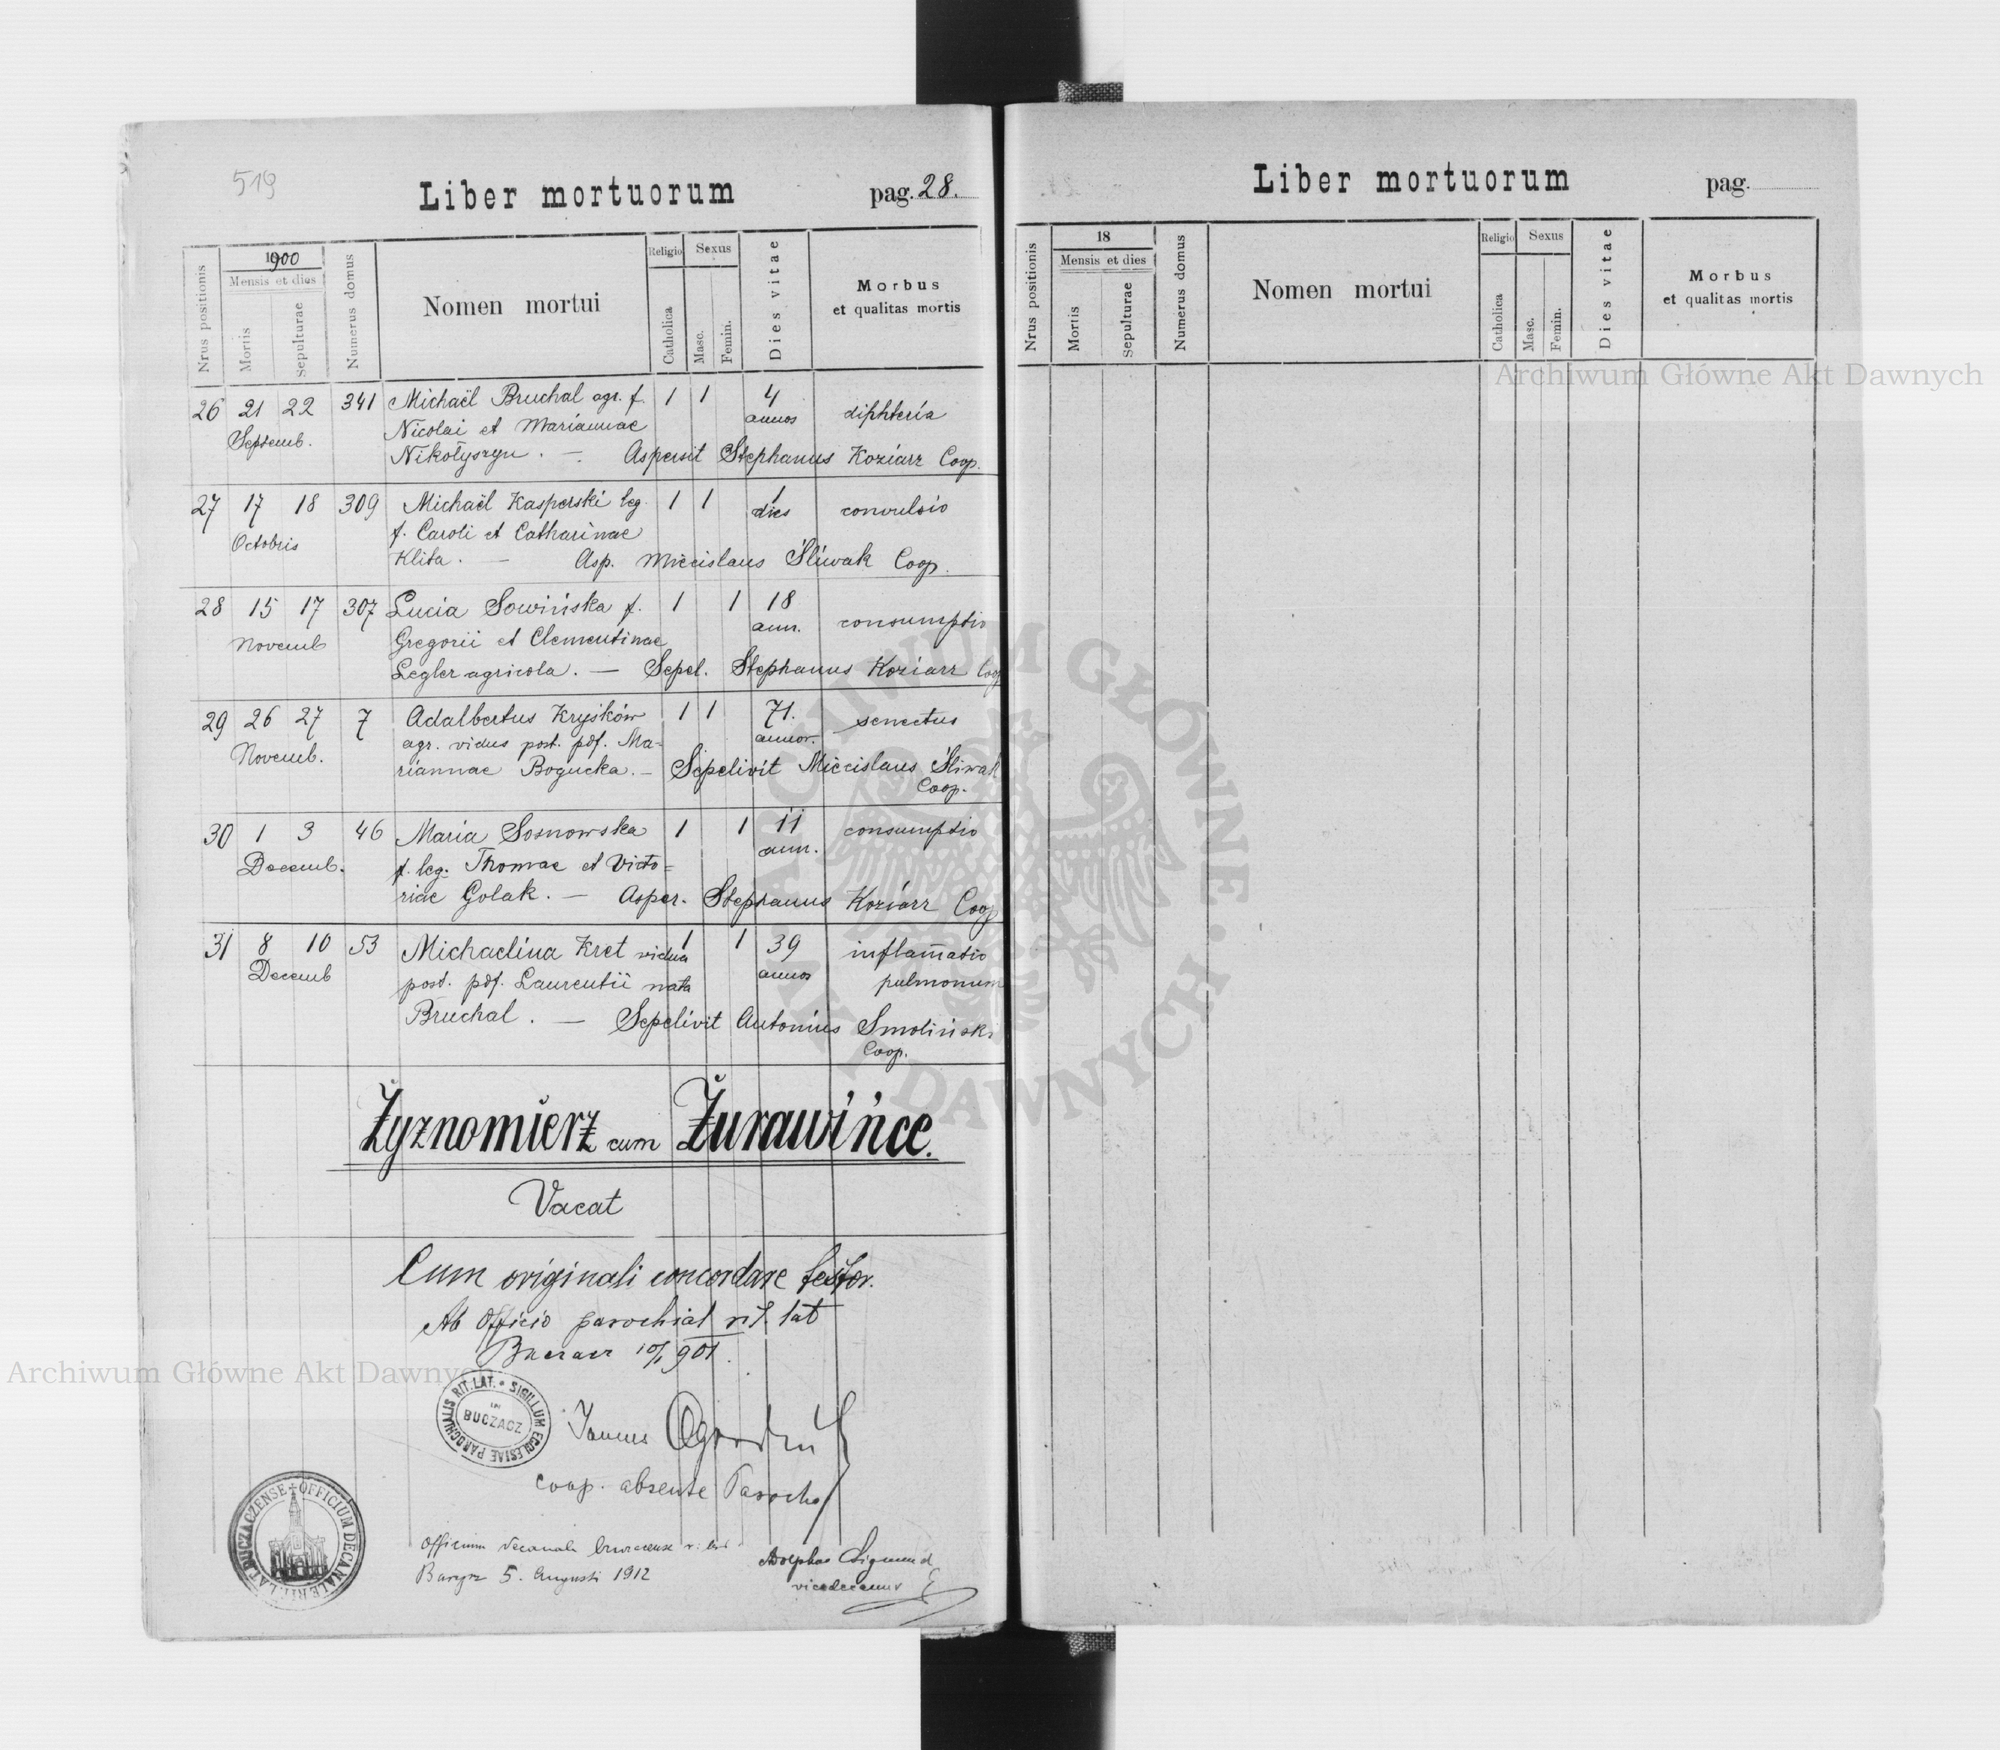 519
Liber mortuorum pag. 28.
Nrus positionis
1900
Mensis et dies
Mortis
Sepulturae
Numerus domus
Nomen mortui
Religio
Catholica
Sexus
Masc.
Femin.
Dies vitae
Morbus
et qualitas mortis
26 21 22 341 Michaël Bruchal agr. f. 1 1 4 diphteria
Septemb. Nicolai et Mariannae annos
Nikołyszyn. — Aspersit Stephanus Koziarz Coop.
27 17 18 309 Michaël Kasperski leg. 1 1 1 convulsio
Octobris f. Caroli et Catharinae dies
Klita. — Asp. Miecislaus Śliwak Coop.
28 15 17 307 Lucia Sowińska f. 1 1 18 consumptio
Novemb Gregorii et Clementinae ann.
Legler agricola. — Sepel. Stephanus Koziarz Coop
29 26 27 7 Adalbertus Kryśków 1 1 71. senectus
Novemb. agr. vidus post. pdf. Ma- annor.
riannae Bogucka. — Sepelivit Miecislaus Śliwak
Coop.
30 1 3 46 Maria Sosnowska 1 1 11 consumptio
Decemb. f. leg. Thomae et Victo= ann.
riae Golak. — Asper. Stephanus Koziarz Coop
31 8 10 53 Michaelina Kret vidua 1 1 39 inflam̄atio
Decemb post. pdf. Laurentii nata annos pulmonum
Bruchal. — Sepelivit Antonius Smoliński
Coop.
Żyznomierz cum Żurawińce.
Vacat
Cum originali concordare testor.
Ab Officio parochial rit. lat
Buczacz 10/1 901.
SIGILLUM ECCLESIAE PAROCHIALIS RIT. LAT.
IN
BUCZACZ
coop. absente Parocho
OFFICIUM DECANALE RIT. LAT. BUCZACZENSE
Officium Decanale r. lat
Barysz 5. Augusti 1912
Adolphus Sigmund
vicedecanus
Liber mortuorum pag.
Nrus positionis
18
Mensis et dies
Mortis
Sepulturae
Numerus domus
Nomen mortui
Religio
Catholica
Sexus
Masc.
Femin.
Dies vitae
Morbus
et qualitas mortis
Archiwum Główne Akt Dawnych
Archiwum Główne Akt Dawnych
ARCHIWUM GŁÓWNE AKT DAWNYCH